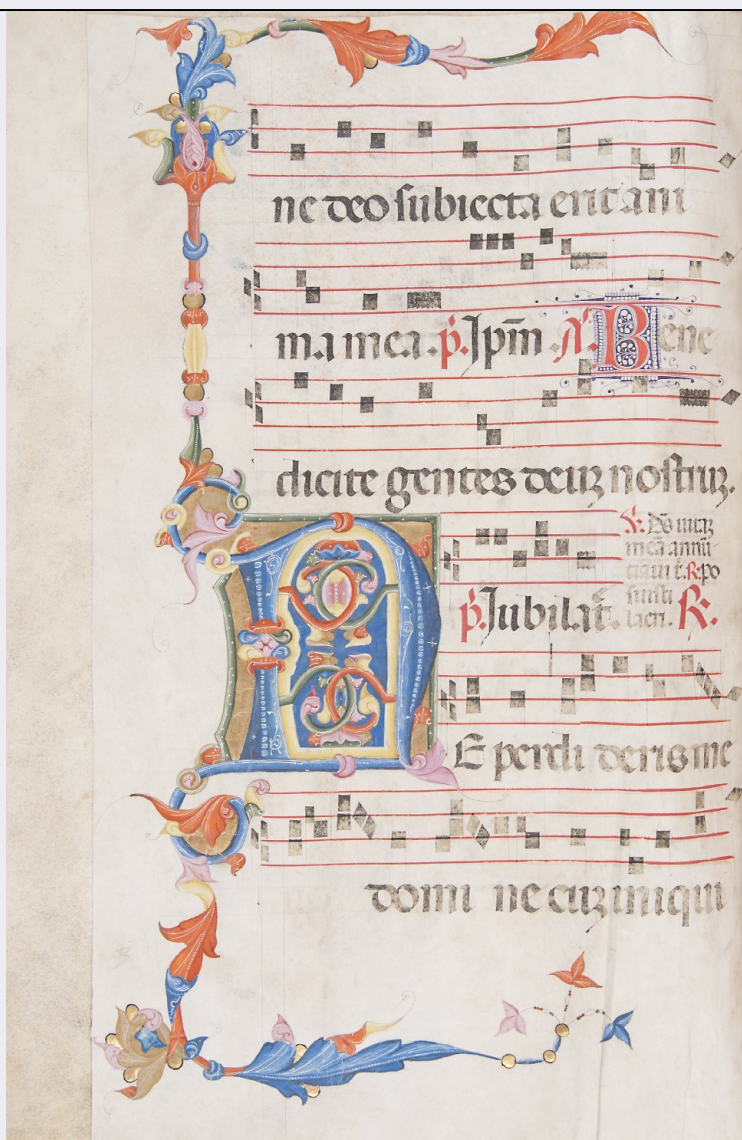 ne deo subiecta erit ani
ma mea. p̄. Ip̄m ℣. Bene
dicite gentes deuꝫ nostruꝫ.
℣. D̄s uitaꝫ
meā annū
ciaui t̄. ℟. po
suisti
lacri. ℟.
p̄. Jubilat̄.
NE perdi deris me
domi ne cuꝫ iniqui